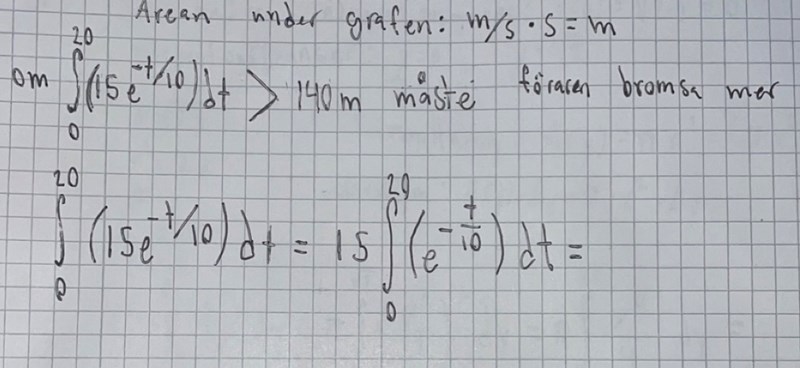 Arean under grafen: m/s · s = m
om ∫₀²⁰ (15e^(-t/10)) dt > 140 m måste föraren bromsa mer
∫₀²⁰ (15e^(-t/10)) dt = 15 ∫₀²⁰ (e^(-t/10)) dt =